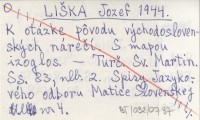 LIŠKA Jozef 1944.
K otázke pôvodu východosloven-
ských nárečí. S mapou
izoglos. — Turč. Sv. Martin.
Ss. 83, nlb. 2. Spisy Jazyko-
vého odboru Matice Slovenskej
nr 4.